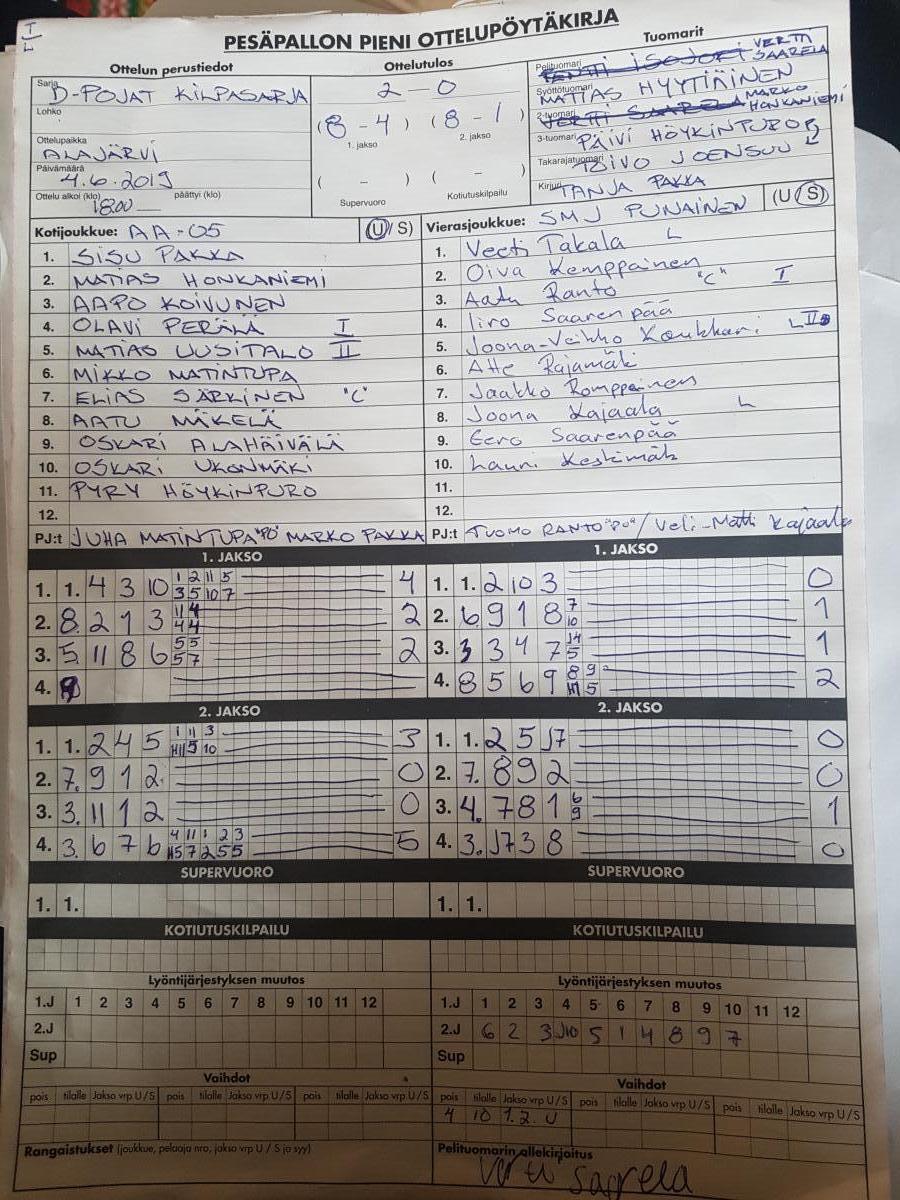 PESÄPALLON PIENI OTTELUPÖYTÄKIRJA
Ottelun perustiedot
Sarja D-POJAT KILPASARJA
Lohko
Ottelupaikka
ALAJÄRVI
Päivämäärä
4.6.2019
Ottelu alkoi (klo) päättyi (klo)
18.00
Ottelutulos
2 - 0
(8 - 4) (8 - 1)
1. jakso 2. jakso
( - ) ( - )
Supervuoro Kotiutuskilpailu
Tuomarit
Pelituomari VERTTI SAARELA
Syöttötuomari
MATIAS HYYTIÄINEN
2-tuomari MARKO HONKANIEMI
3-tuomari PÄIVI HÖYKINPURO
Takarajatuomari TOIVO JOENSUU
Kirjuri TANJA PAKKA
Kotijoukkue: AA-05 (U/S)
1. SISU PAKKA
2. MATIAS HONKANIEMI
3. AAPO KOIVUNEN
4. OLAVI PERÄLÄ I
5. MATIAS UUSITALO II
6. MIKKO MATINTUPA
7. ELIAS SÄRKINEN "C"
8. AATU MÄKELÄ
9. OSKARI ALAHÄIVÄLÄ
10. OSKARI UKONMÄKI
11. PYRY HÖYKINPURO
12.
PJ:t JUHA MATINTUPA "PO" MARKO PAKKA
Vierasjoukkue: SMJ PUNAINEN (U/S)
1. Veeti Takala L
2. Oiva Kemppainen
3. Aatu Ranto "C" I
4. Iiro Saarenpää
5. Joona-Veikko Koukkari L II
6. Atte Rajamäki
7. Jaakko Romppainen
8. Joona Kajaala L
9. Eero Saarenpää
10. Lauri Keskimäk
11.
12.
PJ:t TUOMO RANTO "PO" / Veli-Matti Kajaala
1. JAKSO
1. 1. 4 3 10 1 2 11 5 4
3 5 10 7
2. 8. 2 1 3 11 4 2
4 4
3. 5. 11 8 6 5 5 2
5 7
4. 9
1. JAKSO
1. 1. 2 10 3 0
2. 6. 9 1 8 7 1
10
3. 3 3 4 7 J4 1
5
4. 8 5 6 9 8 9 2
5
2. JAKSO
1. 1. 2 4 5 1 11 3 3
5 10
2. 7. 9 1 2 0
3. 3. 11 1 2 0
4. 3. 6 7 6 4 11 1 2 3 5
5 7 2 5 5
2. JAKSO
1. 1. 2 5 J7 0
2. 7. 8 9 2 0
3. 4. 7 8 1 6 1
9
4. 3. J7 3 8 0
SUPERVUORO
1. 1.
SUPERVUORO
1. 1.
KOTIUTUSKILPAILU
KOTIUTUSKILPAILU
Lyöntijärjestyksen muutos
1.J 1 2 3 4 5 6 7 8 9 10 11 12
2.J
Sup
Lyöntijärjestyksen muutos
1.J 1 2 3 4 5 6 7 8 9 10 11 12
2.J 6 2 3 J10 5 1 4 8 9 7
Sup
Vaihdot
pois tilalle Jakso vrp U/S pois tilalle Jakso vrp U/S pois tilalle Jakso vrp U/S
Vaihdot
pois tilalle Jakso vrp U/S pois tilalle Jakso vrp U/S pois tilalle Jakso vrp U/S
4 10 1.2. U
Rangaistukset (joukkue, pelaaja nro, jakso vrp U / S ja syy)
Pelituomarin allekirjoitus